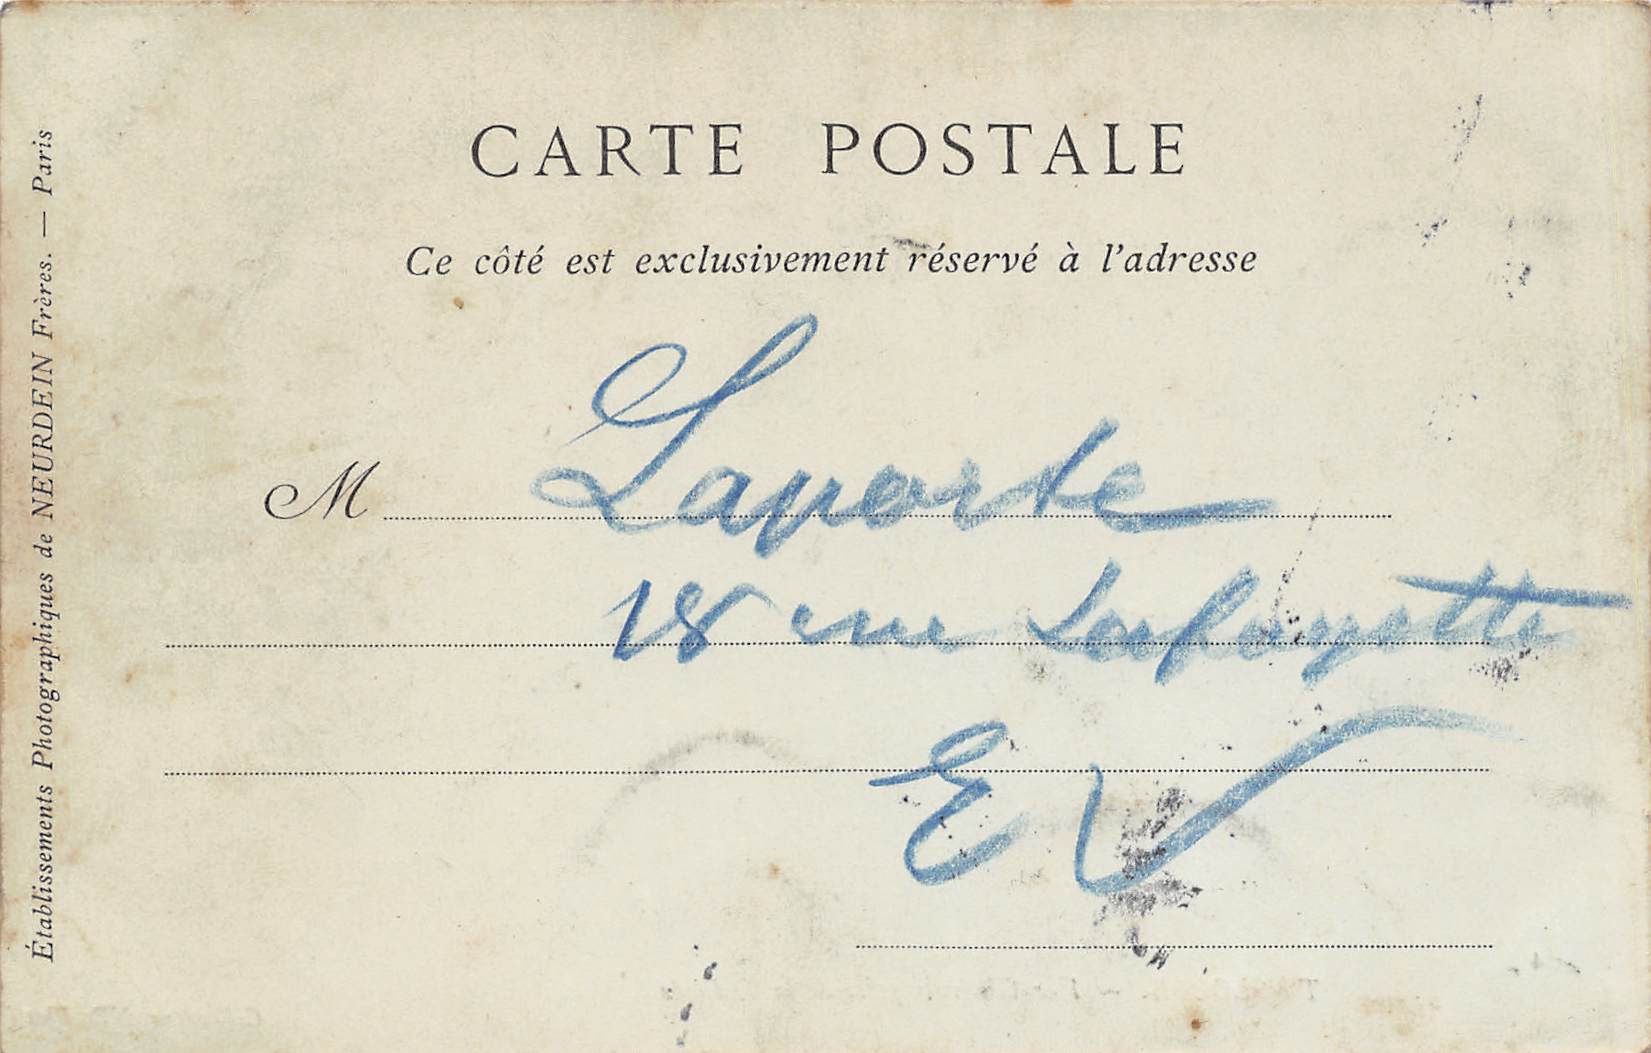 CARTE POSTALE
Ce côté est exclusivement réservé à l'adresse
M Laporte
18 rue Lafayette
EV
Établissements Photographiques de NEURDEIN Frères. — Paris